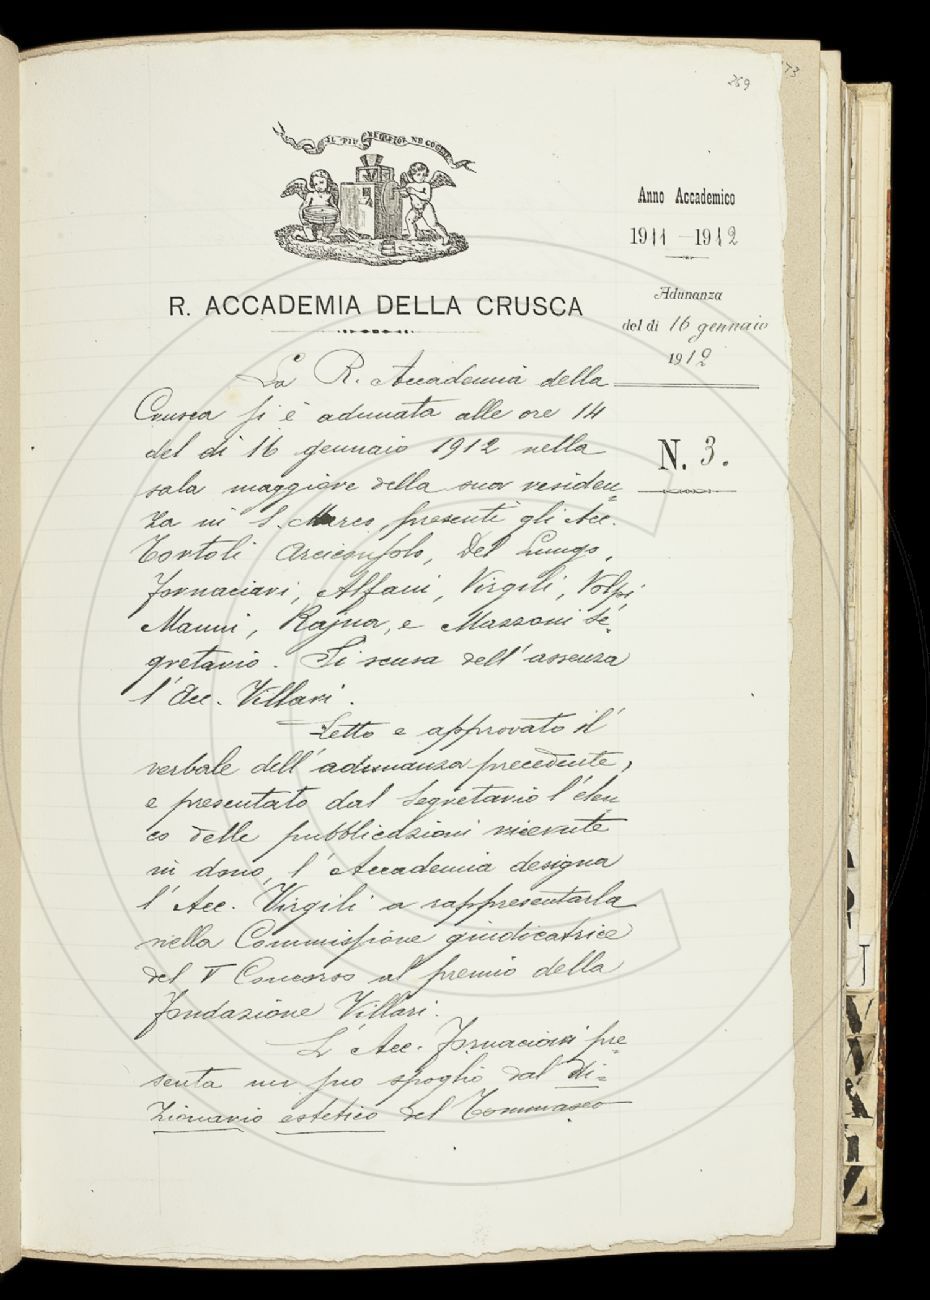 269
73
IL PIÙ BEL FIOR NE COGLIE
R. ACCADEMIA DELLA CRUSCA
Anno Accademico
1911 - 1912
Adunanza
del dì 16 gennaio
1912
N. 3.
La R. Accademia della
Crusca si è adunata alle ore 14
del dì 16 gennaio 1912 nella
sala maggiore della sua residen=
za in S. Marco, presenti gli Acc.
Tortoli Arciconsolo, Del Lungo,
Fornaciari, Alfani, Virgili, Volpi,
Manni, Rajna, e Mazzoni Se=
gretario. Si scusa dell'assenza
l'Acc. Villari.
Letto e approvato il
verbale dell'adunanza precedente,
e presentato dal Segretario l'elen
co delle pubblicazioni ricevute
in dono, l'Accademia designa
l'Acc. Virgili a rappresentarla
nella Commissione giudicatrice
del V Concorso al premio della
Fondazione Villari.
L'Acc. Fornaciari pre=
senta un suo spoglio dal Di=
zionario estetico del Tommaseo